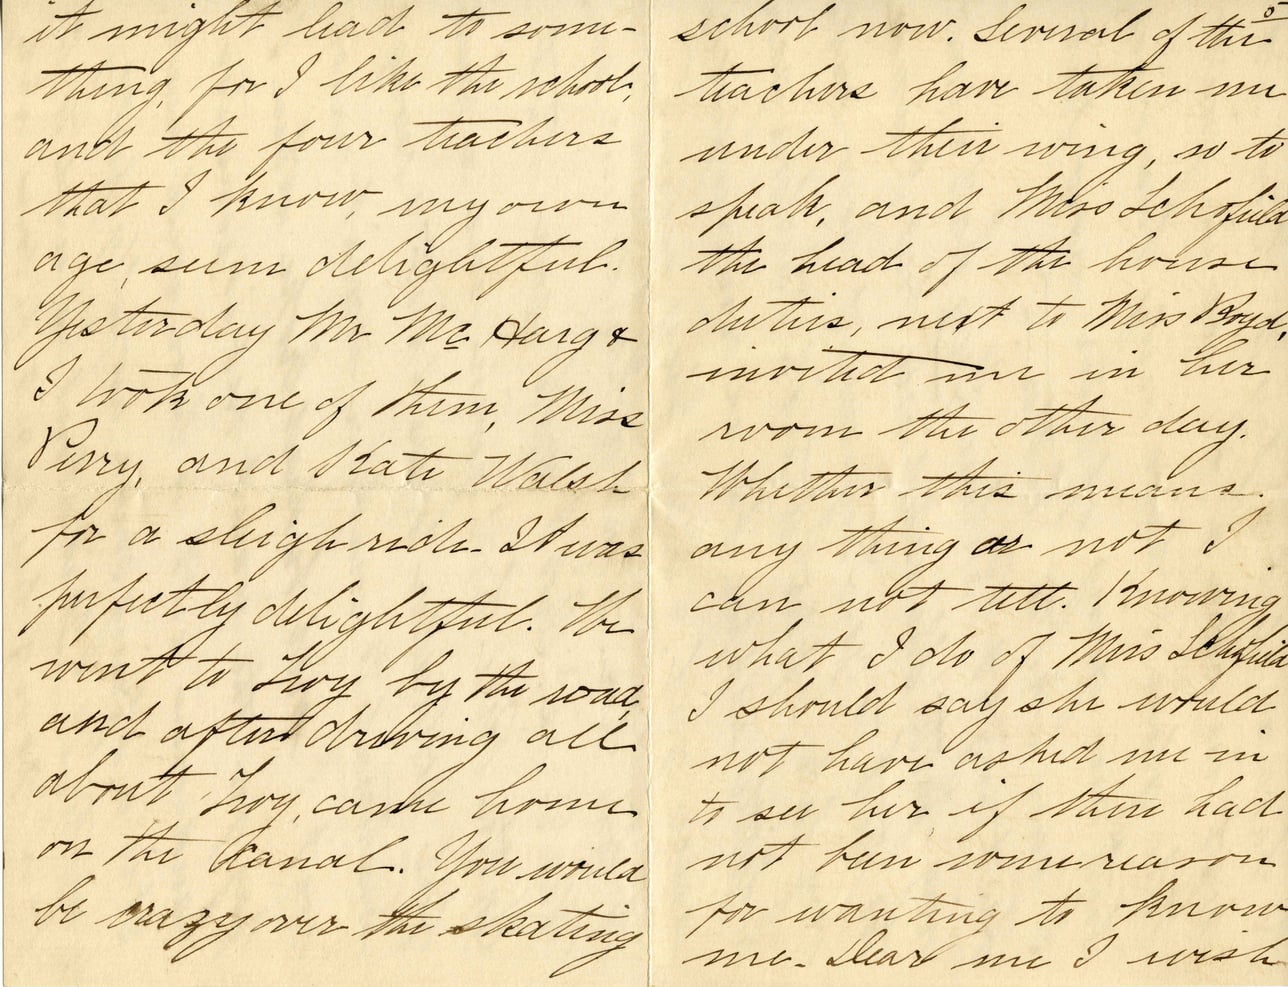 it might lead to some-
thing, for I like the school,
and the four teachers
that I know, my own
age, seem delightful.
Yesterday Mr McHarg &
I took one of them, Miss
Perry, and Kate Walsh
for a sleigh ride. It was
perfectly delightful. We
went to Troy by the road,
and after driving all
about Troy, came home
on the Canal. You would
be crazy over the skating
5
school now. Several of the
teachers have taken me
under their wing, so to
speak, and Miss Schofield
the head of the house
duties, next to Miss Boyd,
invited me in her
room the other day.
Whether this means
any thing or not I
can not tell. Knowing
what I do of Miss Schofield
I should say she would
not have asked me in
to see her if there had
not been some reason
for wanting to know
me. Dear me I wish